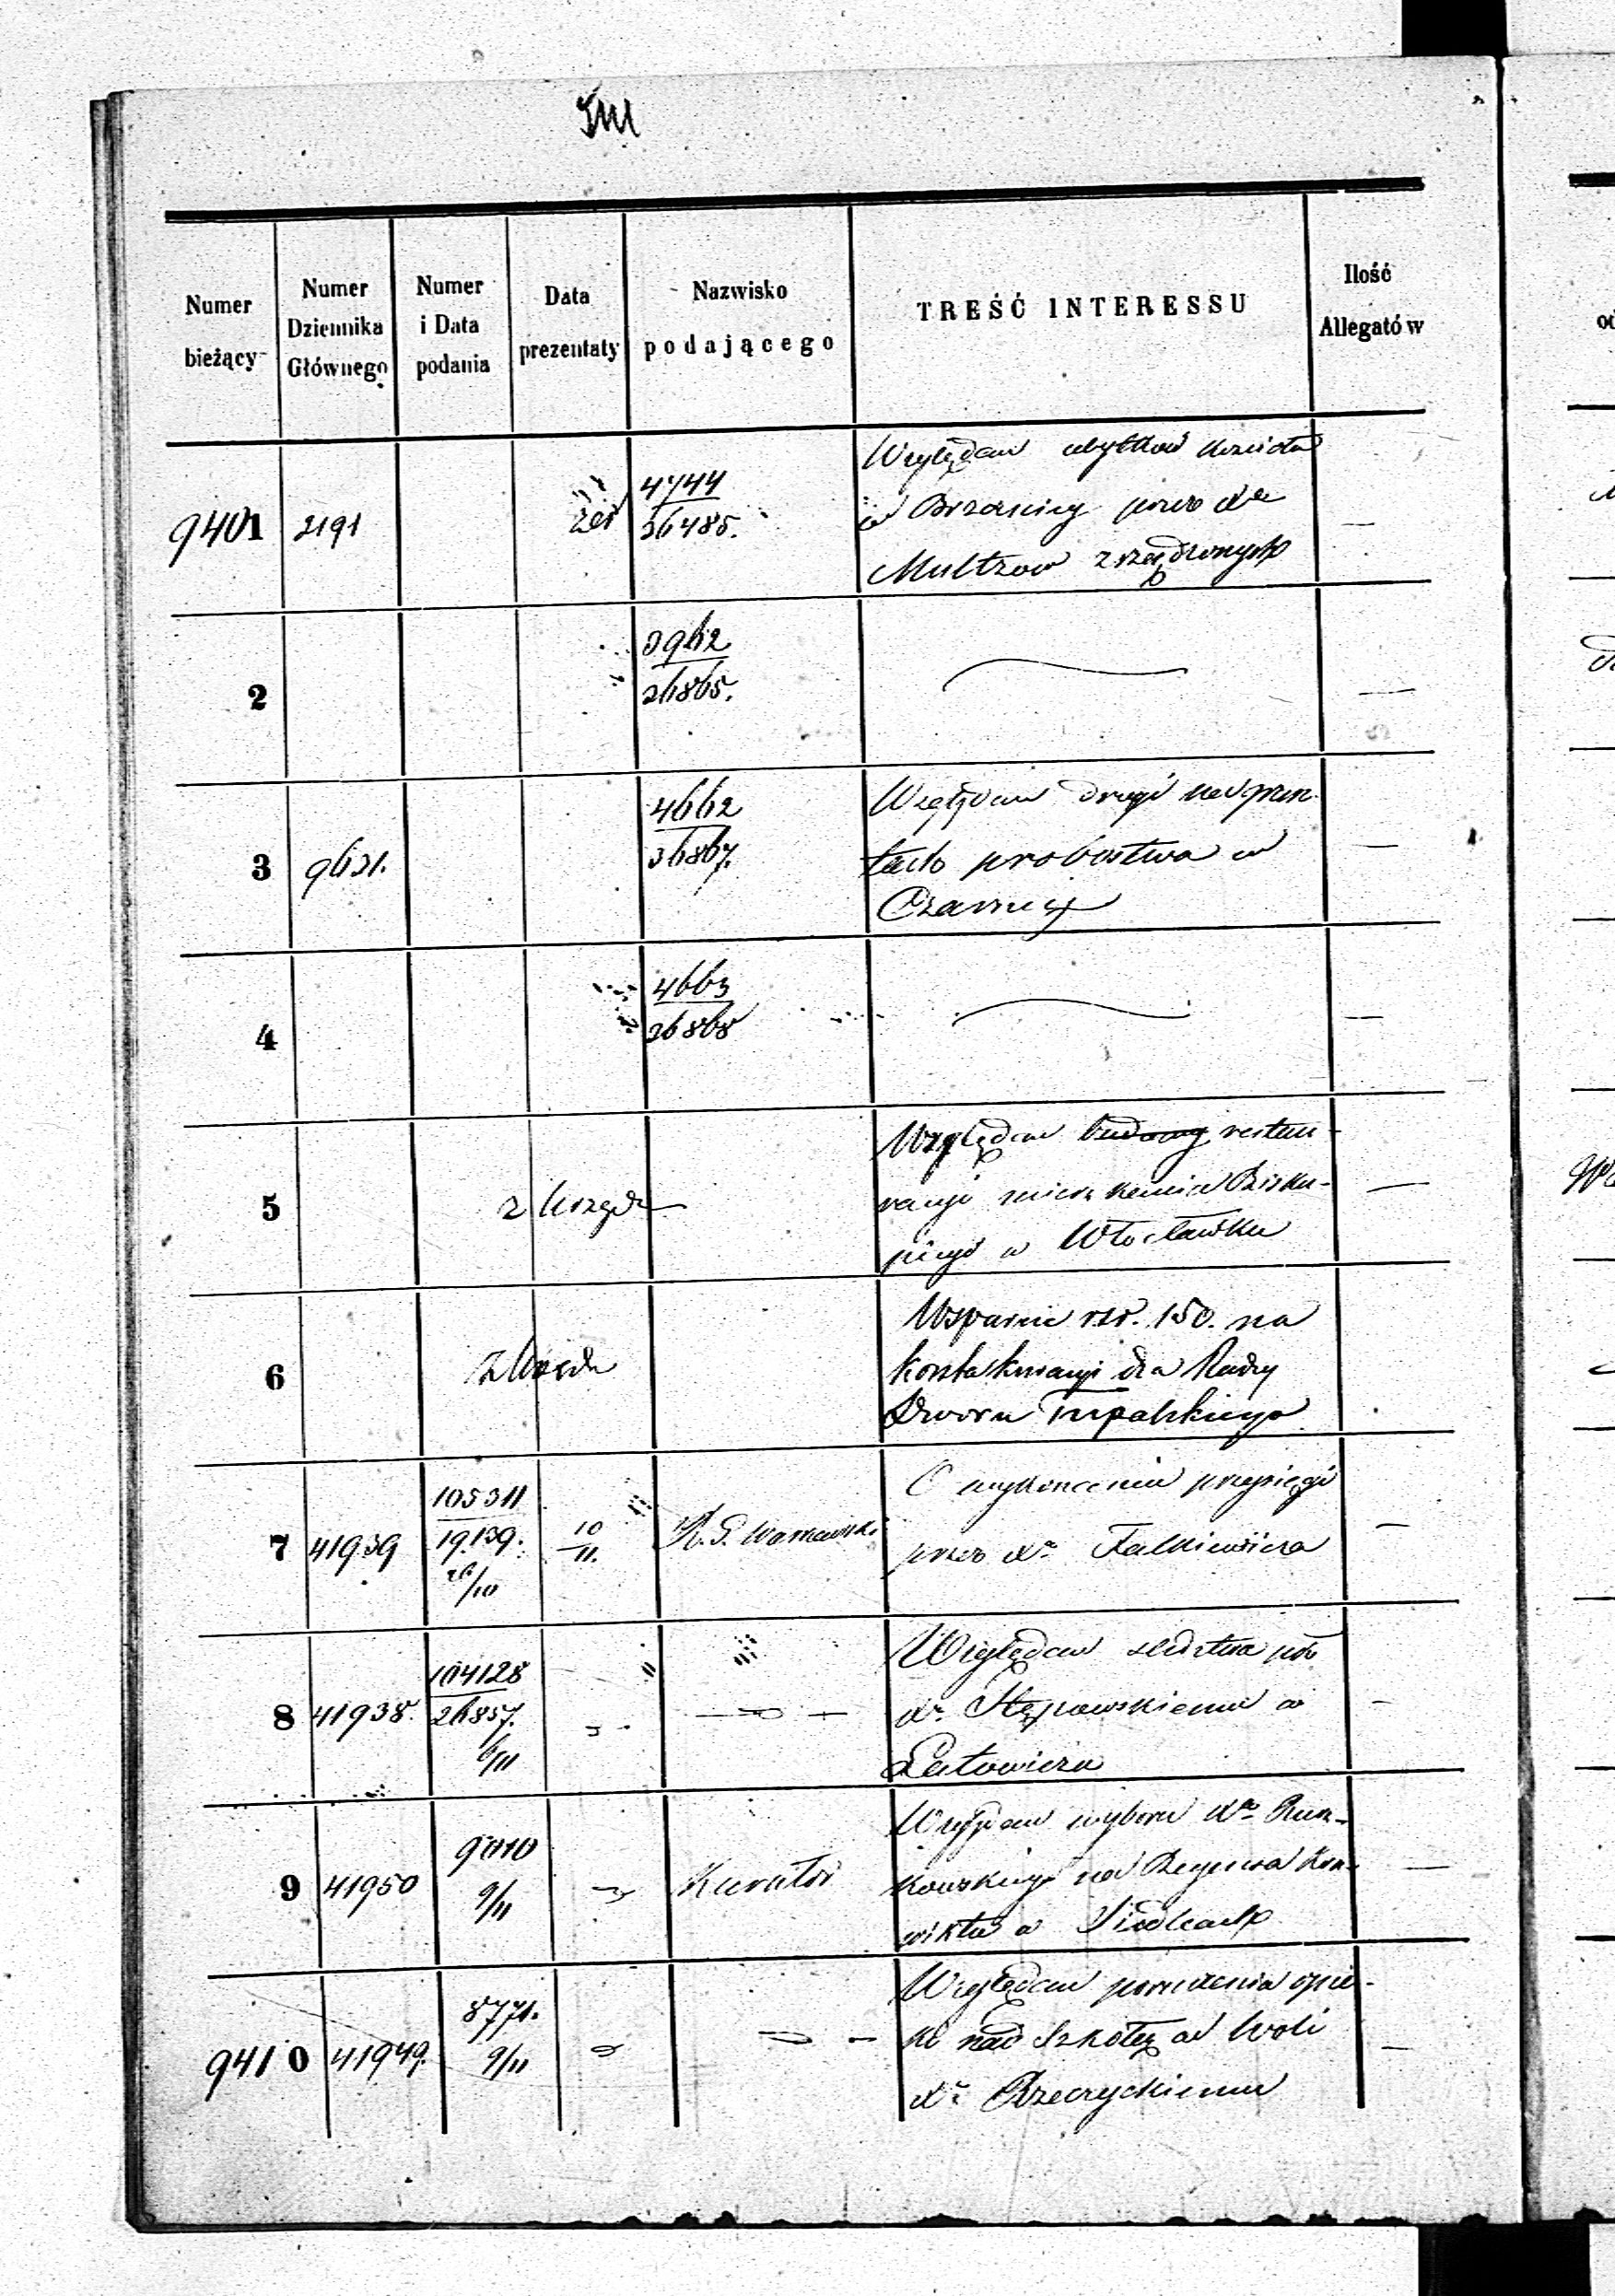 Numer bieżący
Numer Dziennika Głównego
Numer i Data podania
Data prezentaty
Nazwisko podającego
TREŚĆ INTERESSU
Ilość Allegatów
9401 2191
4744
36485.
Względem
w przez Xa
Multzow zrządzonych
—
2
3962
26865.
—
3 9631.
4662
36867.
Względem drogi na grun-
tach probostwa w
Czarncy
—
4
4663
36868
—
5 z Urzędu
Względem budowy restau-
racyi mieszkania Bisku-
piego w Włocławku
—
6 z Urzędu
Wsparcie rsr. 150. na
koszta kuracyi dla Radcy
Dworu
7 41939
105311
19139.
26/10
10
11.
K. G. Warszawski
O wykonaniu przysięgi
przez Xa Falkiewicza
—
8 41938.
104128
26857.
6/11
Względem śledztwa pko
Xu Stępowskiemu w
Latowiczu
—
9 41950
9010
9/11
Kurator
Względem wyboru Xa Rusz-
kowskiego na Regensa Kon-
wiktu w Siedlcach
—
9410 41949.
8771.
9/11
Względem poruczenia opie-
ki nad Szkołą w Woli
Xu Rzeczyckiemu
—